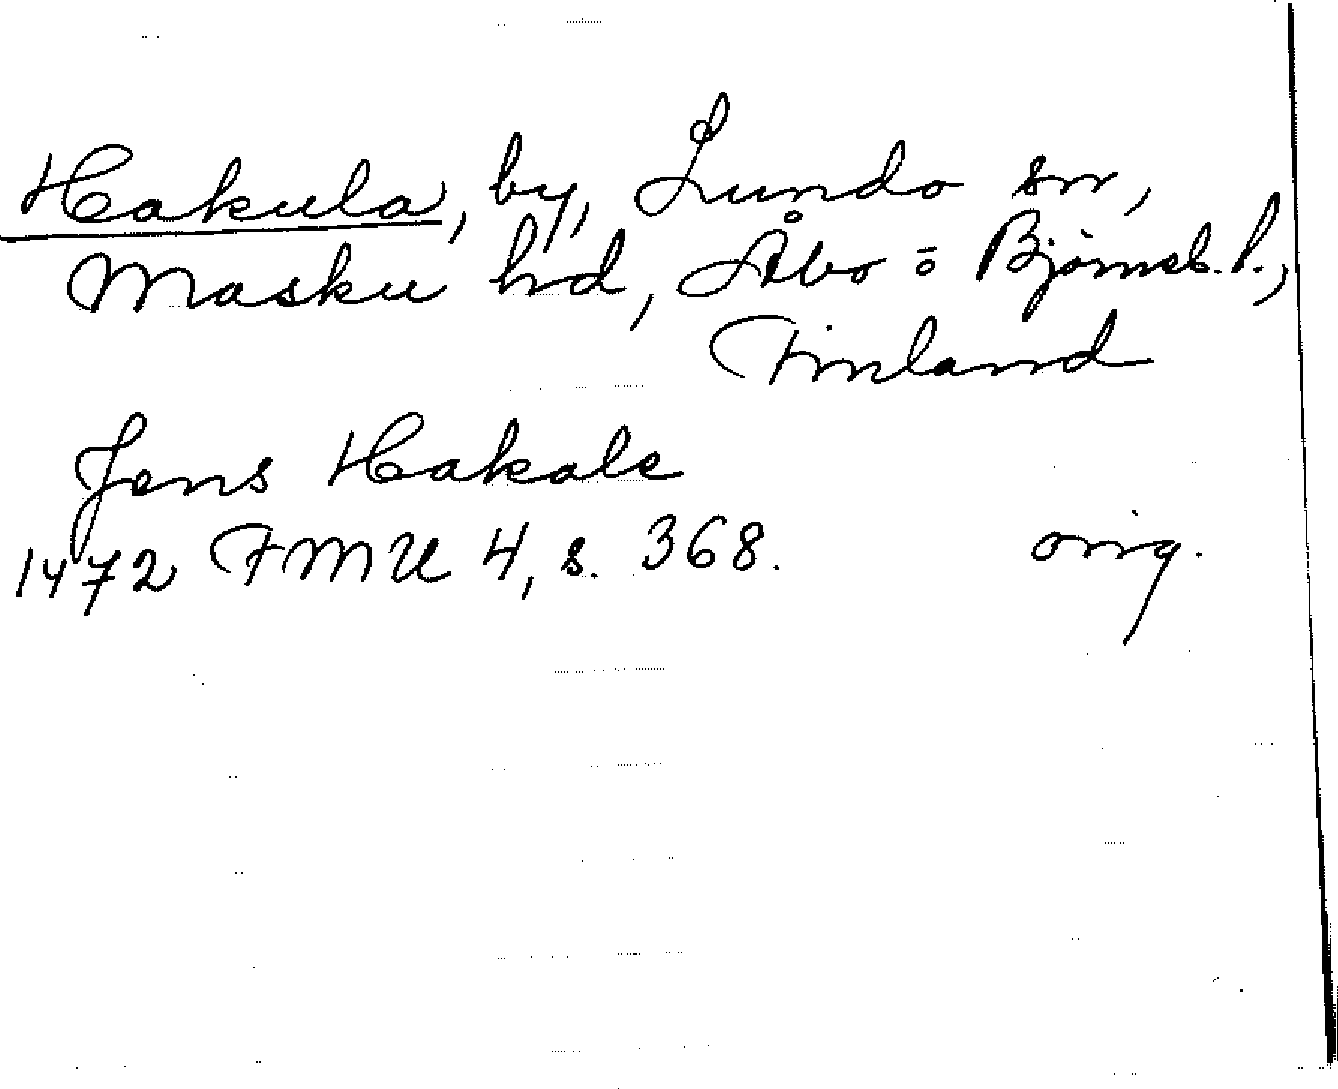 Hakula, by, Lundo sn,
Masku hd, Åbo o Björneb. l.,
Finland
Jens Hakale
1472 FMU 4, s. 368. orig.